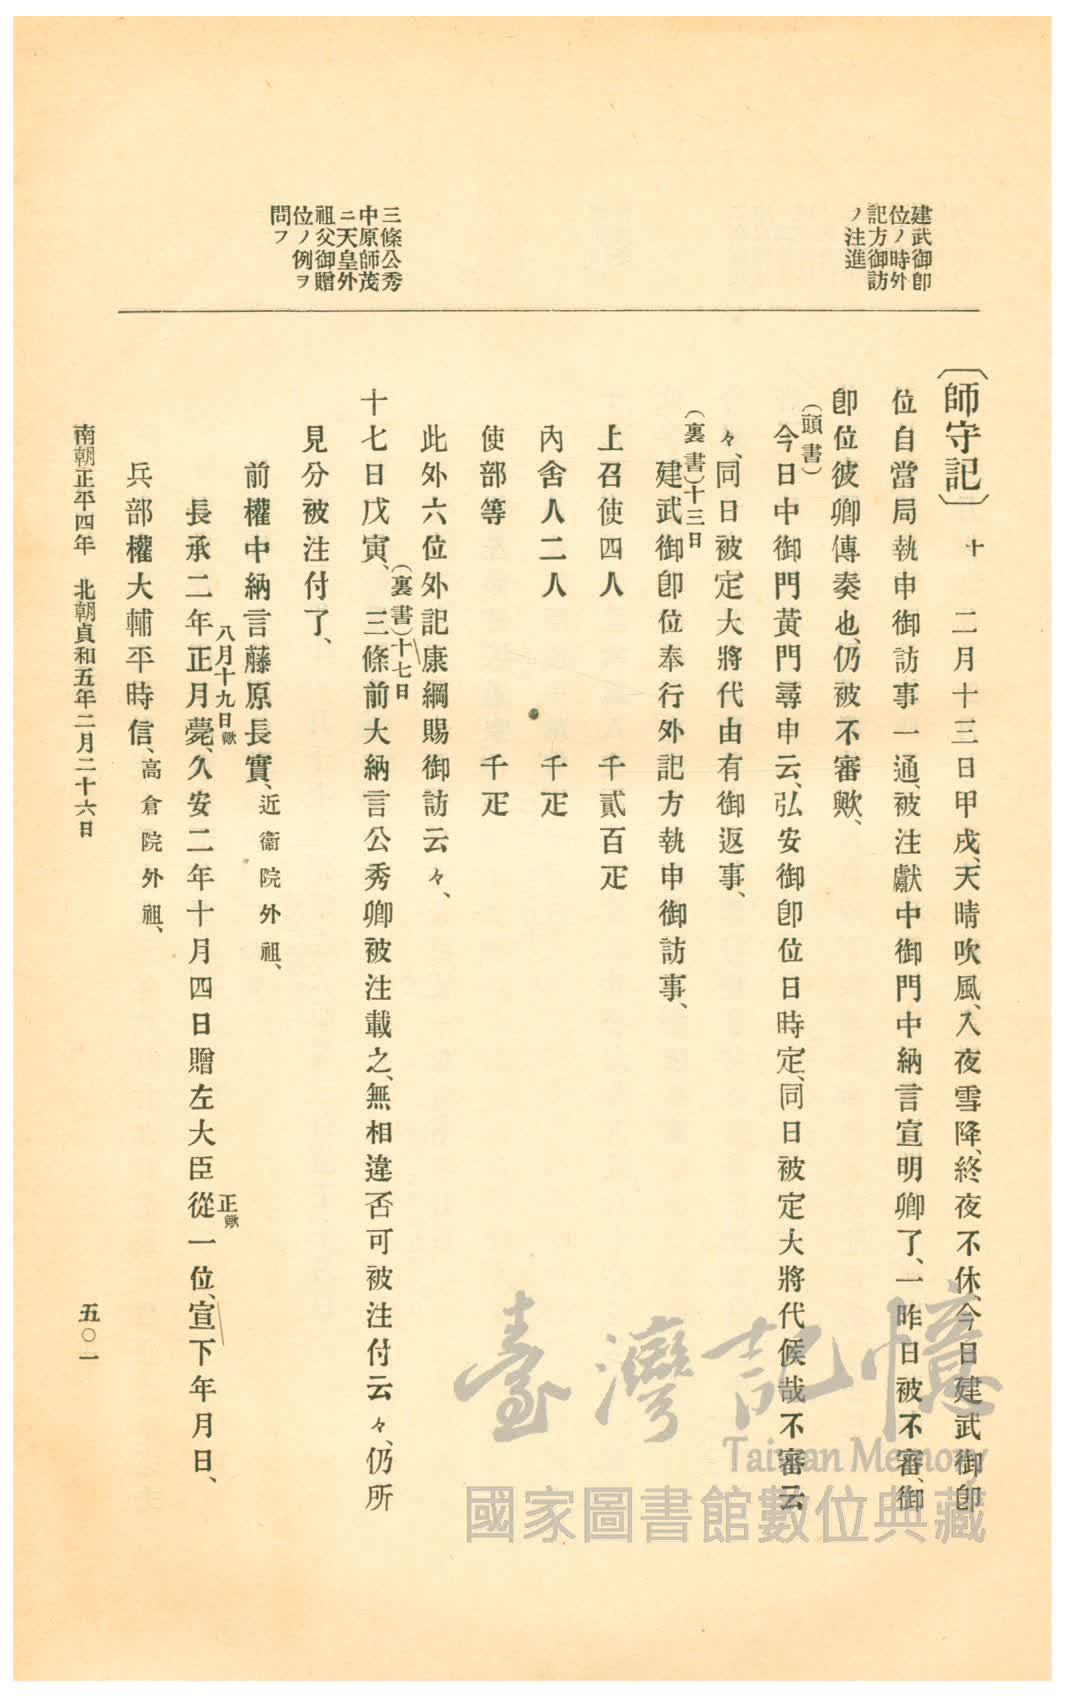 建武御卽
位ノ時外
記方御訪
ノ注進
三條公秀
中原師茂
ニ天皇外
祖父御贈
位ノ例ヲ
問フ
〔師守記〕十 二月十三日甲戌、天晴吹風、入夜雪降、終夜不休、今日建武御卽
位自當局執申御訪事一通、被注獻中御門中納言宣明卿了、一昨日被不審、御
卽位彼卿傳奏也、仍被不審歟、
(頭書)
今日中御門黃門尋申云、弘安御卽位日時定、同日被定大將代候哉不審云
々、同日被定大將代由有御返事、
(裏書)十三日
建武御卽位奉行外記方執申御訪事、
上召使四人 千貳百疋
內舍人二人 千疋
使部等 千疋
此外六位外記康綱賜御訪云々、
(裏書)十七日
十七日戊寅、三條前大納言公秀卿被注載之、無相違否可被注付云々、仍所
見分被注付了、
前權中納言藤原長實、近衞院外祖、
八月十九日歟
長承二年正月薨、久安二年十月四日贈左大臣從一位、宣下年月日、
正歟
兵部權大輔平時信、高倉院外祖、
南朝正平四年 北朝貞和五年二月二十六日
五〇一
臺灣記憶
Taiwan Memory
國家圖書館數位典藏